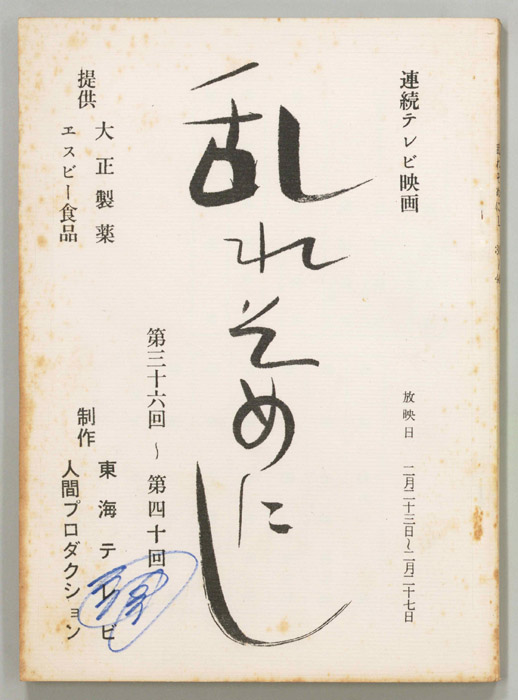 連続テレビ映画
放映日 二月二十三日~二月二十七日
乱れそめにし
第三十六回~第四十回
提供 大正製薬
エスビー食品
制作 東海テレビ
人間プロダクション